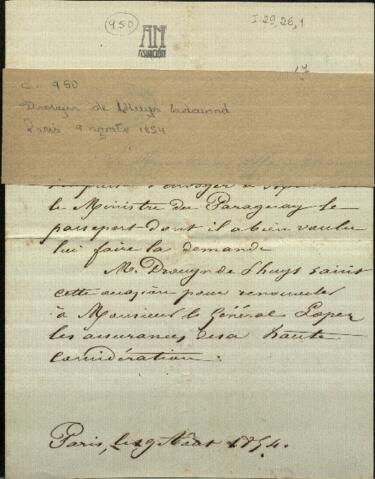 950
I 29, 26, 1
AN
ASUNCIÓN
C. 950
Drouyn de Lhuys Edouard
Paris 9 agosto 1854
le Ministre du Paraguay le
passeport dont il a bien voulu
lui faire la demande
M. Drouyn de Lhuys saisit
cette occasion pour renouveler
à Monsieur le Général Lopez
les assurances de sa haute
considération.
Paris, le 9 Août 1854.